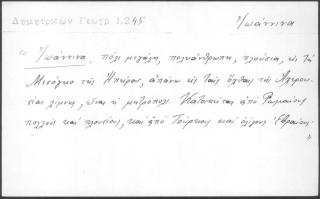 Δημητριέων Γεωγρ 1.245
Ἰωάννινα
" Ἰωάννινα, πόλι μεγάλη, πολυάνθρωπη, πλούσια, εἰς τὴ
Μεσόγειο τῆς Ἠπείρου, ἀπάνω εἰς ταῖς ὄχθαις τῆς Ἀχερου-
σίας λίμνης, εἶναι ἡ μητρόπολι. Κατοικεῖται ἀπό Ρωμαίους
πολλούς καί πλουσίους, καί ἀπό Τούρκους καί ὀλίγους Ἑβραίους.